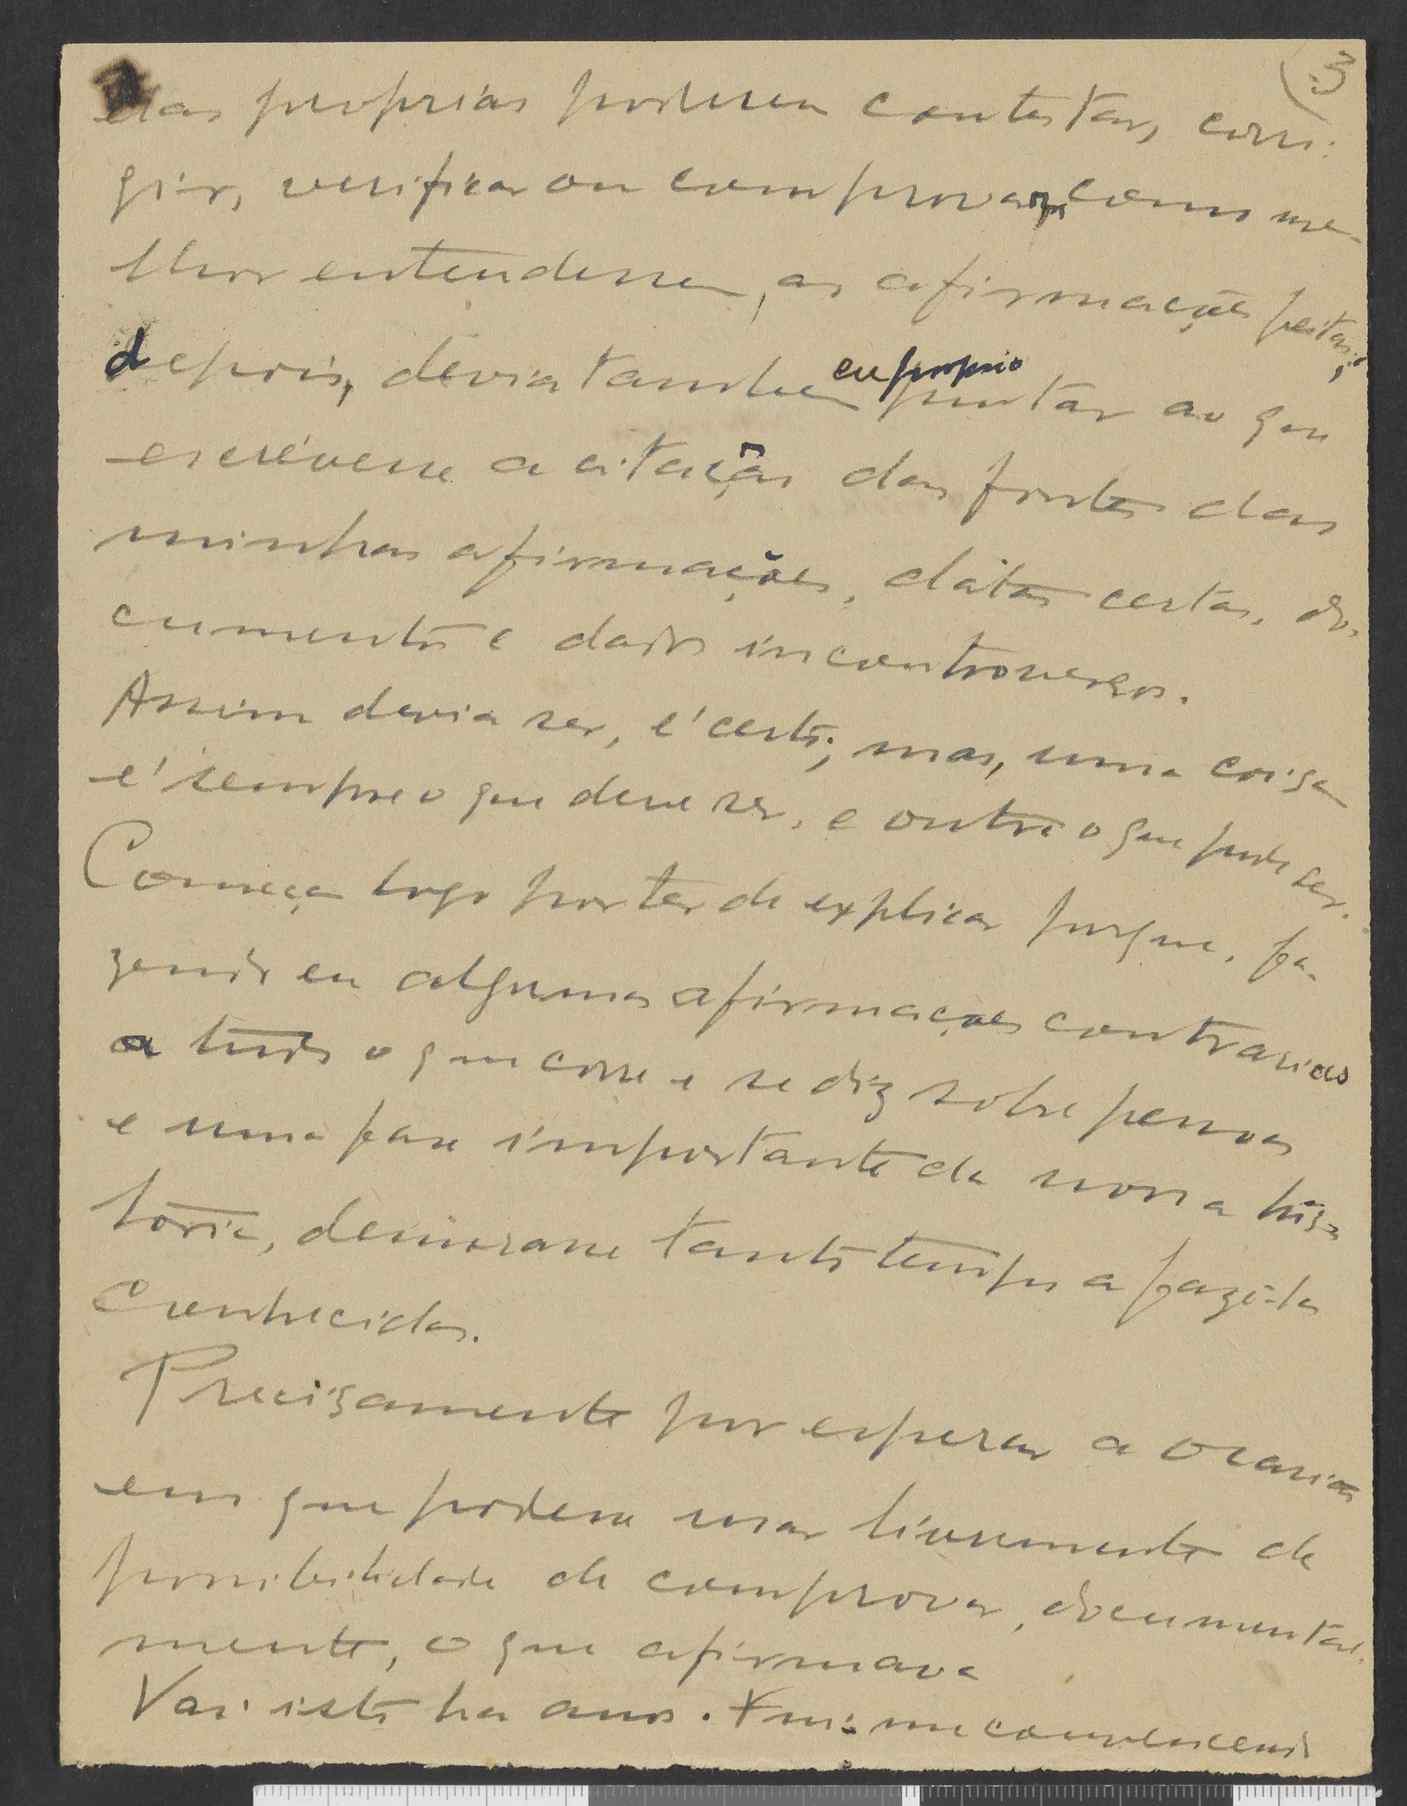 3
elas proprias poderem contestar, corri-
gir, verificar ou comprovar, como me-
lhor entendessem, as afirmações feitas;
depois, devia tambem eu proprio juntar ao que
escrevesse a citação das fontes das
minhas afirmações, datas certas, do-
cumentos e dados incontroversos.
Assim devia ser, é certo; mas, uma coisa
é sempre o que deve ser, e outra o que pode ser.
Começa logo por ter de explicar porque, fa-
zendo eu algumas afirmações contrarias
a tudo o que corre e se diz sobre pessoas
e uma fase importante da nossa his-
tória, demorasse tanto tempo a fazê-las
conhecidas.
Precisamente por esperar a ocasião
em que podesse usar livremente da
possibilidade de comprovar, documental-
mente, o que afirmava
Vai isto ha anos. Fui-me convencendo